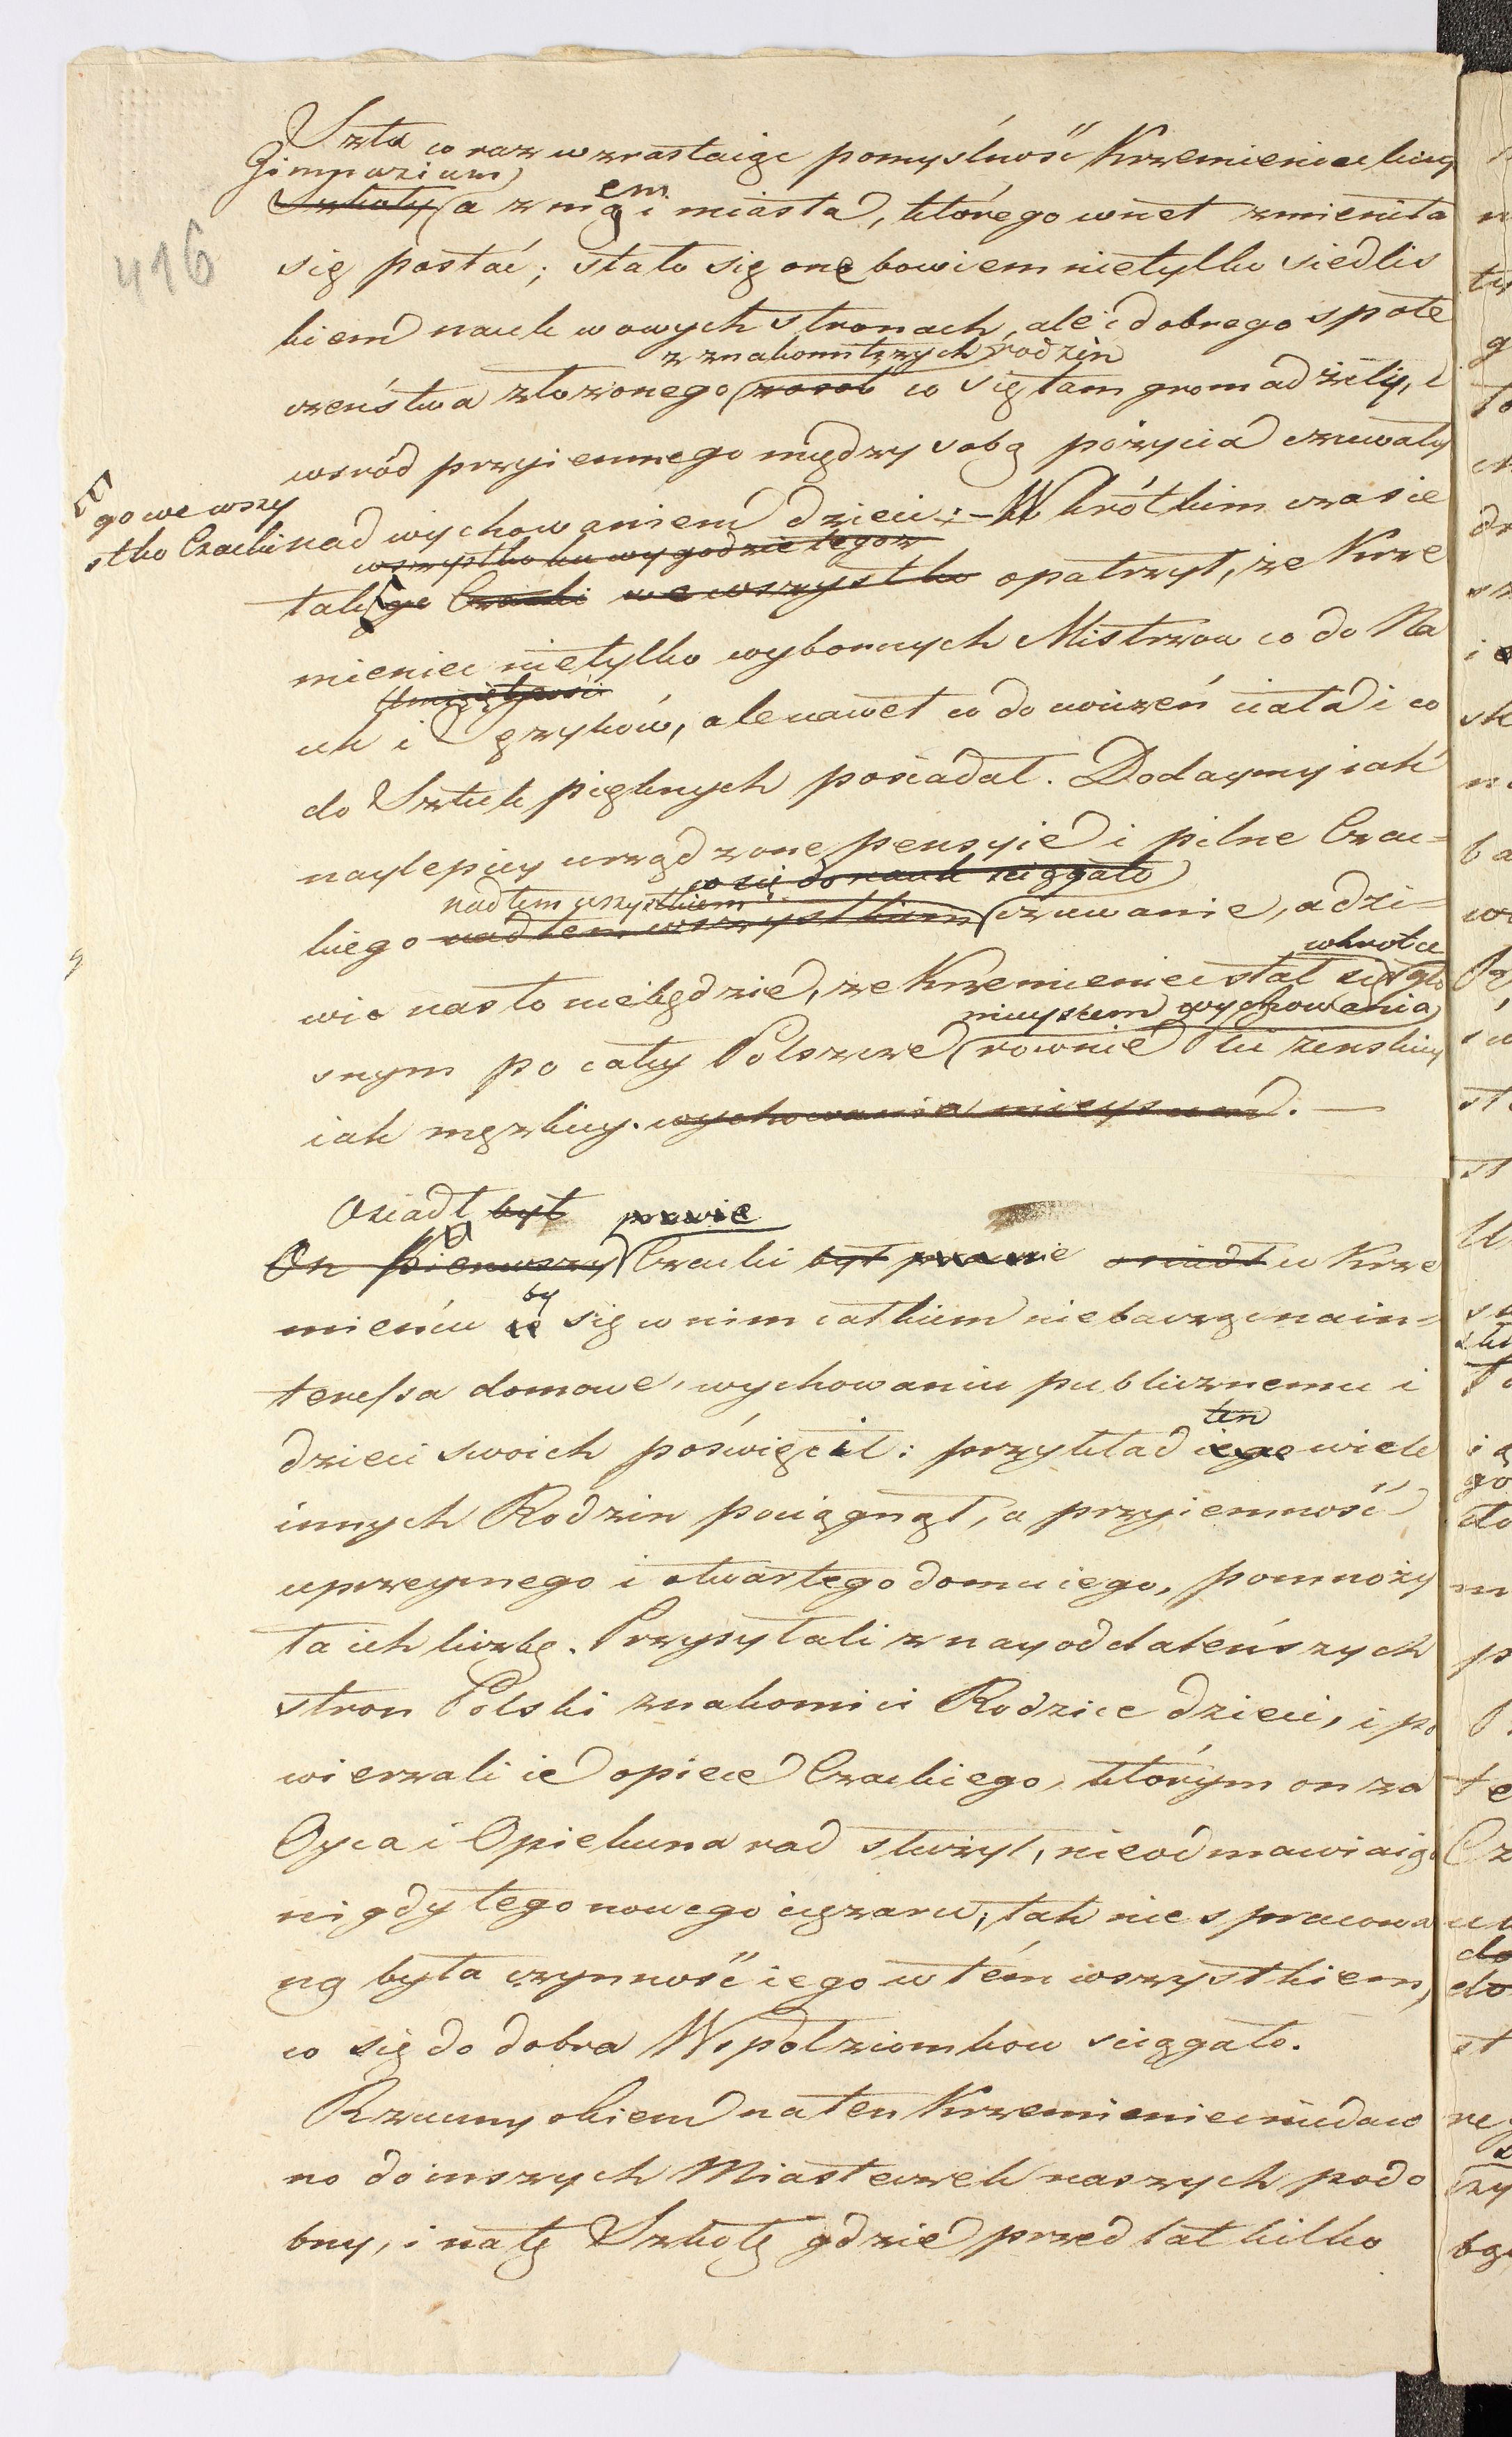 416
Szła co raz wzrastaiąc pomyślność Krzemienieckiey
Gimnazium
Szkoły a z nią em i miasta, którego wnet zmieniła
się postać; stało się one bowiem nietylko siedlis
kiem nauk w owych stronach, ale i dobrego społe
z znakomitszych rodzin
czeństwa złożonego z osob co się tam gromadziły, i
wsród przyiemnego między sobą pożycia czuwały
nad wychowaniem dzieci; – W krótkim czasie
go we wszy
stko Czacki
wszystko ku wygodzie tegoż
tak go Czacki we wszystko opatrzył, że Krze
mieniec nietylko wybornych Mistrzow co do Na
Umiejętności
uk i Języków, ale nawet co do cwiczeń ciała i co
do Sztuk pięknych posiadał. Dodaymy iak
naylepiey urządzone pensyie i pilne Czac=
co się do nauk sciągało
nad tem wszystkiem
kiego nad tem wszystkiem czuwanie, a dzi=
wkrotce
wić nas to niebędzie, ze Krzemieniec stał się gło
mieyscem wychowania
snym po całey Polszcze rownie Płci zenskiey
iak męzkiey. wychowania mieyscem. —
Osiadł był prawie
On Pierwszy Czacki był prawie osiadł w Krze
by
mieńcu i się w nim całkiem niebacząc na in=
teressa domowe, wychowaniu publicznemu i
ten
dzieci swoich poświęcił: przykład iego wiele
innych Rodzin pociągnął, a przyiemność
uprzeymego i otwartego domu iego, pomnoży
ła ich liczbę. Przysyłali z nayoddaleńszych
stron Polski znakomici Rodzice dzieci, i po
wierzali ie opiece Czackiego, którym on za
Oyca i Opiekuna rad służył, nieodmawiaiąc
nigdy tego nowego ciężaru; tak niespracowa
ną była czynność iego w tém wszystkiem,
co się do dobra Wspołziomkow sciągało.
Rzucmy okiem na ten Krzemieniec niedaw
no do inszych Miasteczek naszych podo
bny, i na tę Szkołę gdzie przed lat kilko